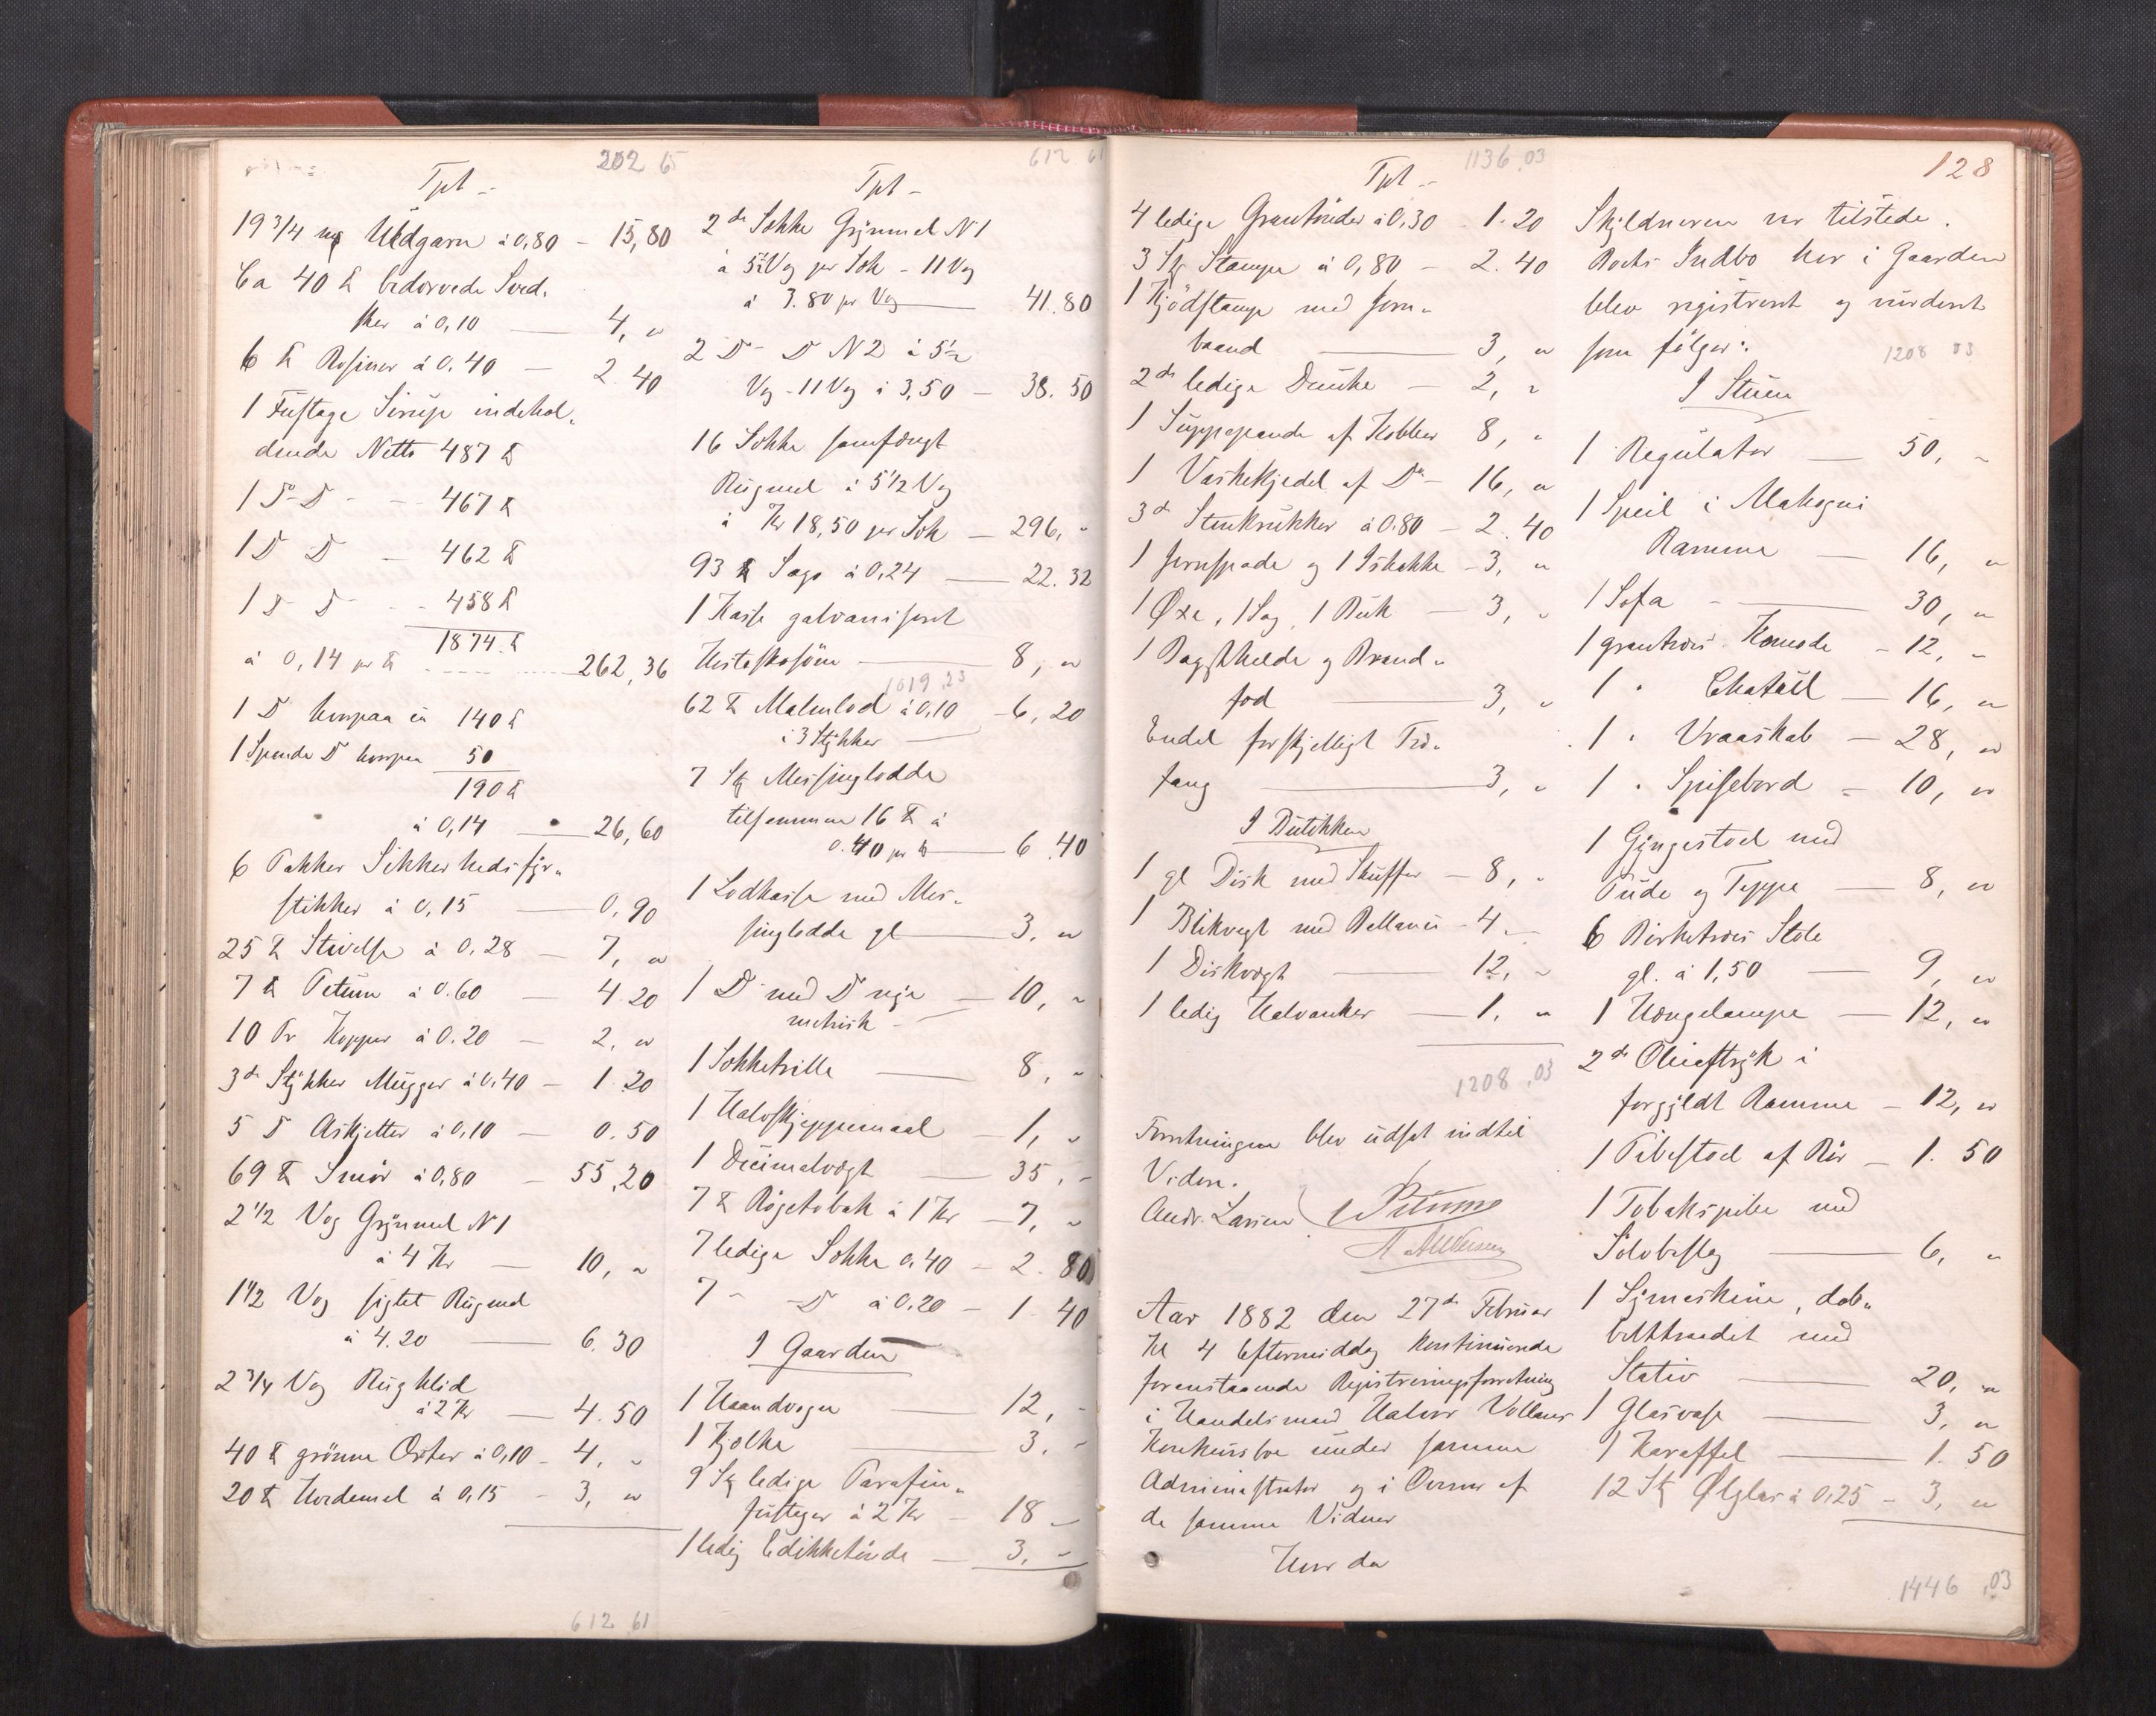 202 65
Tpt -
19 3/4 Uldgarn à 0,80 - 15,80
Ca 40 ℔ bedærvede Sved.
sker à 0,10 — 4, "
6 ℔ Rosiner à 0.40 — 2.40
1 Fustage Sirup indehol-
dende Netto 487 ℔
1 Do Do - 467 ℔
1 D D - 462 ℔
1 D D - 458 ℔
1874 ℔
à 0,14 pr ℔ - 262,36
1 D hvorpaa er 140 ℔
1 D hvorpaa 50
190 ℔
à 0,14 — 26,60
6 Pakker Sikkerhedsfyr-
stikker à 0,15 — 0,90
25 ℔ Stivelse à 0.28 — 7, "
7 ℔ Petum à 0.60 — 4.20
10 Pr Kopper à 0.20 — 2, "
3de Stykker Mugger à 0,40 — 1.20
5 D Askjetter à 0,10 — 0.50
69 ℔ Smör à 0,80 — 55,20
2 1/2 Vog Grynmel N 1
à 4 Kr — 10, "
1 1/2 Vog sigtet Rugmel
à 4.20 — 6.30
2 3/4 Vog Rugklid
à 2 Kr — 4.50
40 ℔ grönne Erter à 0,10 - 4, "
20 ℔ Hvedemel à 0,15 - 3, "
612 61
612 61
Tpt -
2de Sække Grynmel N 1
à 5 1/2 Vog pr Sæk - 11 Vog
à 3.80 pr Vog — 41.80
2 D - D N 2 à 5 1/2
Vog - 11 Vog à 3,50 — 38.50
16 Sække samfængt
Rugmel à 5 1/2 Vog
à Kr 18,50 pr Sæk — 296, "
93 ℔ Sago à 0,24 — 22.32
1 Kasse galvaniseret
Hesteskosöm — 8, "
1019.23
62 ℔ Malmlod à 0,10 - 6,20
i 3 Stykker
7 Stk Messinglodde
tilsammen 16 ℔ à
0.40 pr ℔ — 6.40
1 Lodkasse med Mes-
singlodde gl — 3, "
1 D med D nye — 10, "
metrisk -
1 Sækketrille — 8, "
1 Halvskjeppemaal — 1, "
1 Decimalvægt — 35, "
7 ℔ Røgetobak à 1 Kr — 7, "
7 ledige Sække 0,40 — 2.80
7 - D à 0.20 — 1.40
I Gaarden
1 Haandvogn — 12, "
1 Kjælke — 3, "
9 Stk ledige Parafin-
fustager à 2 Kr — 18 "
1 ledig Edikketönde — 3, "
1136.03
Tpt -
4 ledige Grantönder à 0,30 - 1.20
3 Stk Stamper à 0,80 — 2.40
1 Kjödstampe med Jern-
baand — 3, "
2de ledige Dunke — 2, "
1 Suppepande af Kobber 8, "
1 Vaskekjedel af Do - 16, "
3de Stenkrukker à 0.80 — 2.40
1 Jernspade og 1 Ishakke - 3, "
1 Øxe, 1 Sag, 1 Buk — 3, "
1 Bagsthelde og Brand-
fod — 3, "
Endel forskjelligt Træ-
fang — 3, "
I Butikken
1 gl Disk med Skuffer — 8, "
1 Blikvægt med Ballance - 4 "
1 Diskvægt — 12, "
1 ledig Halvanker — 1, "
1208.03
Forretningen blev udsat indtil
Videre.
Andr. Larsen
Aar 1882 den 27de Februar
Kl 4 Eftermiddag kontinuerede
foranstaaende Registreringsforretning
i Handelsmand Halvor Vollans
Konkursbo under samme
Administrator og i Overvær af
de samme Vidner
Hvor da
128
Skyldneren var tilstede.
Boets Indbo her i Gaarden
blev registreret og vurderet
som fölger:
1208 03
I Stuen
1 Regulator — 50, "
1 Speil i Mahogni
Ramme — 16, "
1 Sofa - — 30, "
1 grantræs Komode - 12, "
1 " Chatúll — 16, "
1 " Vraaskab — 28, "
1 " Spisebord - 10, "
1 Gyngestol med
Pude og Teppe — 8, "
6 Birketræs Stole
gl. à 1,50 — 9, "
1 Hængelampe — 12, "
2de Olieaftryk i
forgyldt Ramme — 12, "
1 Pibestol af Rör — 1.50
1 Tobakspibe med
Sölvbeslag — 6, "
1 Symaskine, dob-
belttraadet med
Stativ — 20, "
1 Glasvase — 3, "
1 Karaffel — 1.50
12 Stk Ølglas à 0,25 - 3, "
1446.03